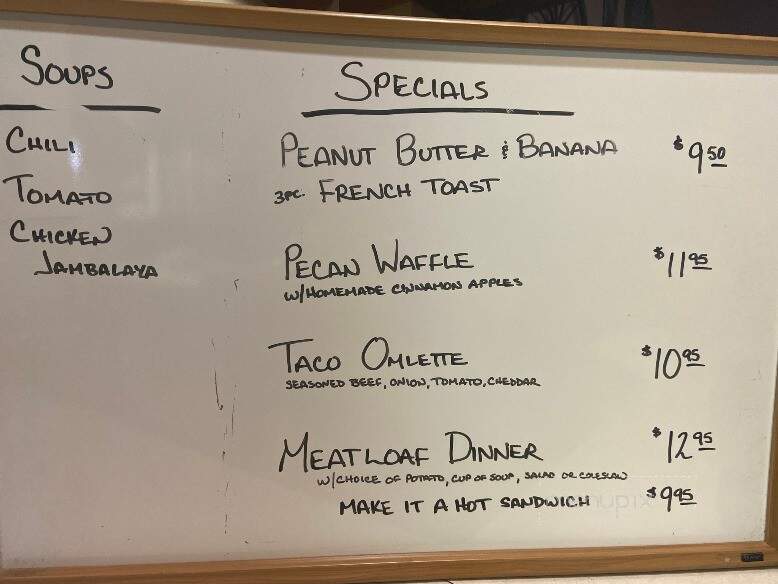 SOUPS
CHILI
TOMATO
CHICKEN
JAMBALAYA
SPECIALS
PEANUT BUTTER & BANANA $9.50
3PC. FRENCH TOAST
PECAN WAFFLE $11.95
W/HOMEMADE CINNAMON APPLES
TACO OMLETTE $10.95
SEASONED BEEF, ONION, TOMATO, CHEDDAR
MEATLOAF DINNER $12.95
W/CHOICE OF POTATO, CUP OF SOUP, SALAD OR COLESLAW
MAKE IT A HOT SANDWICH $9.95